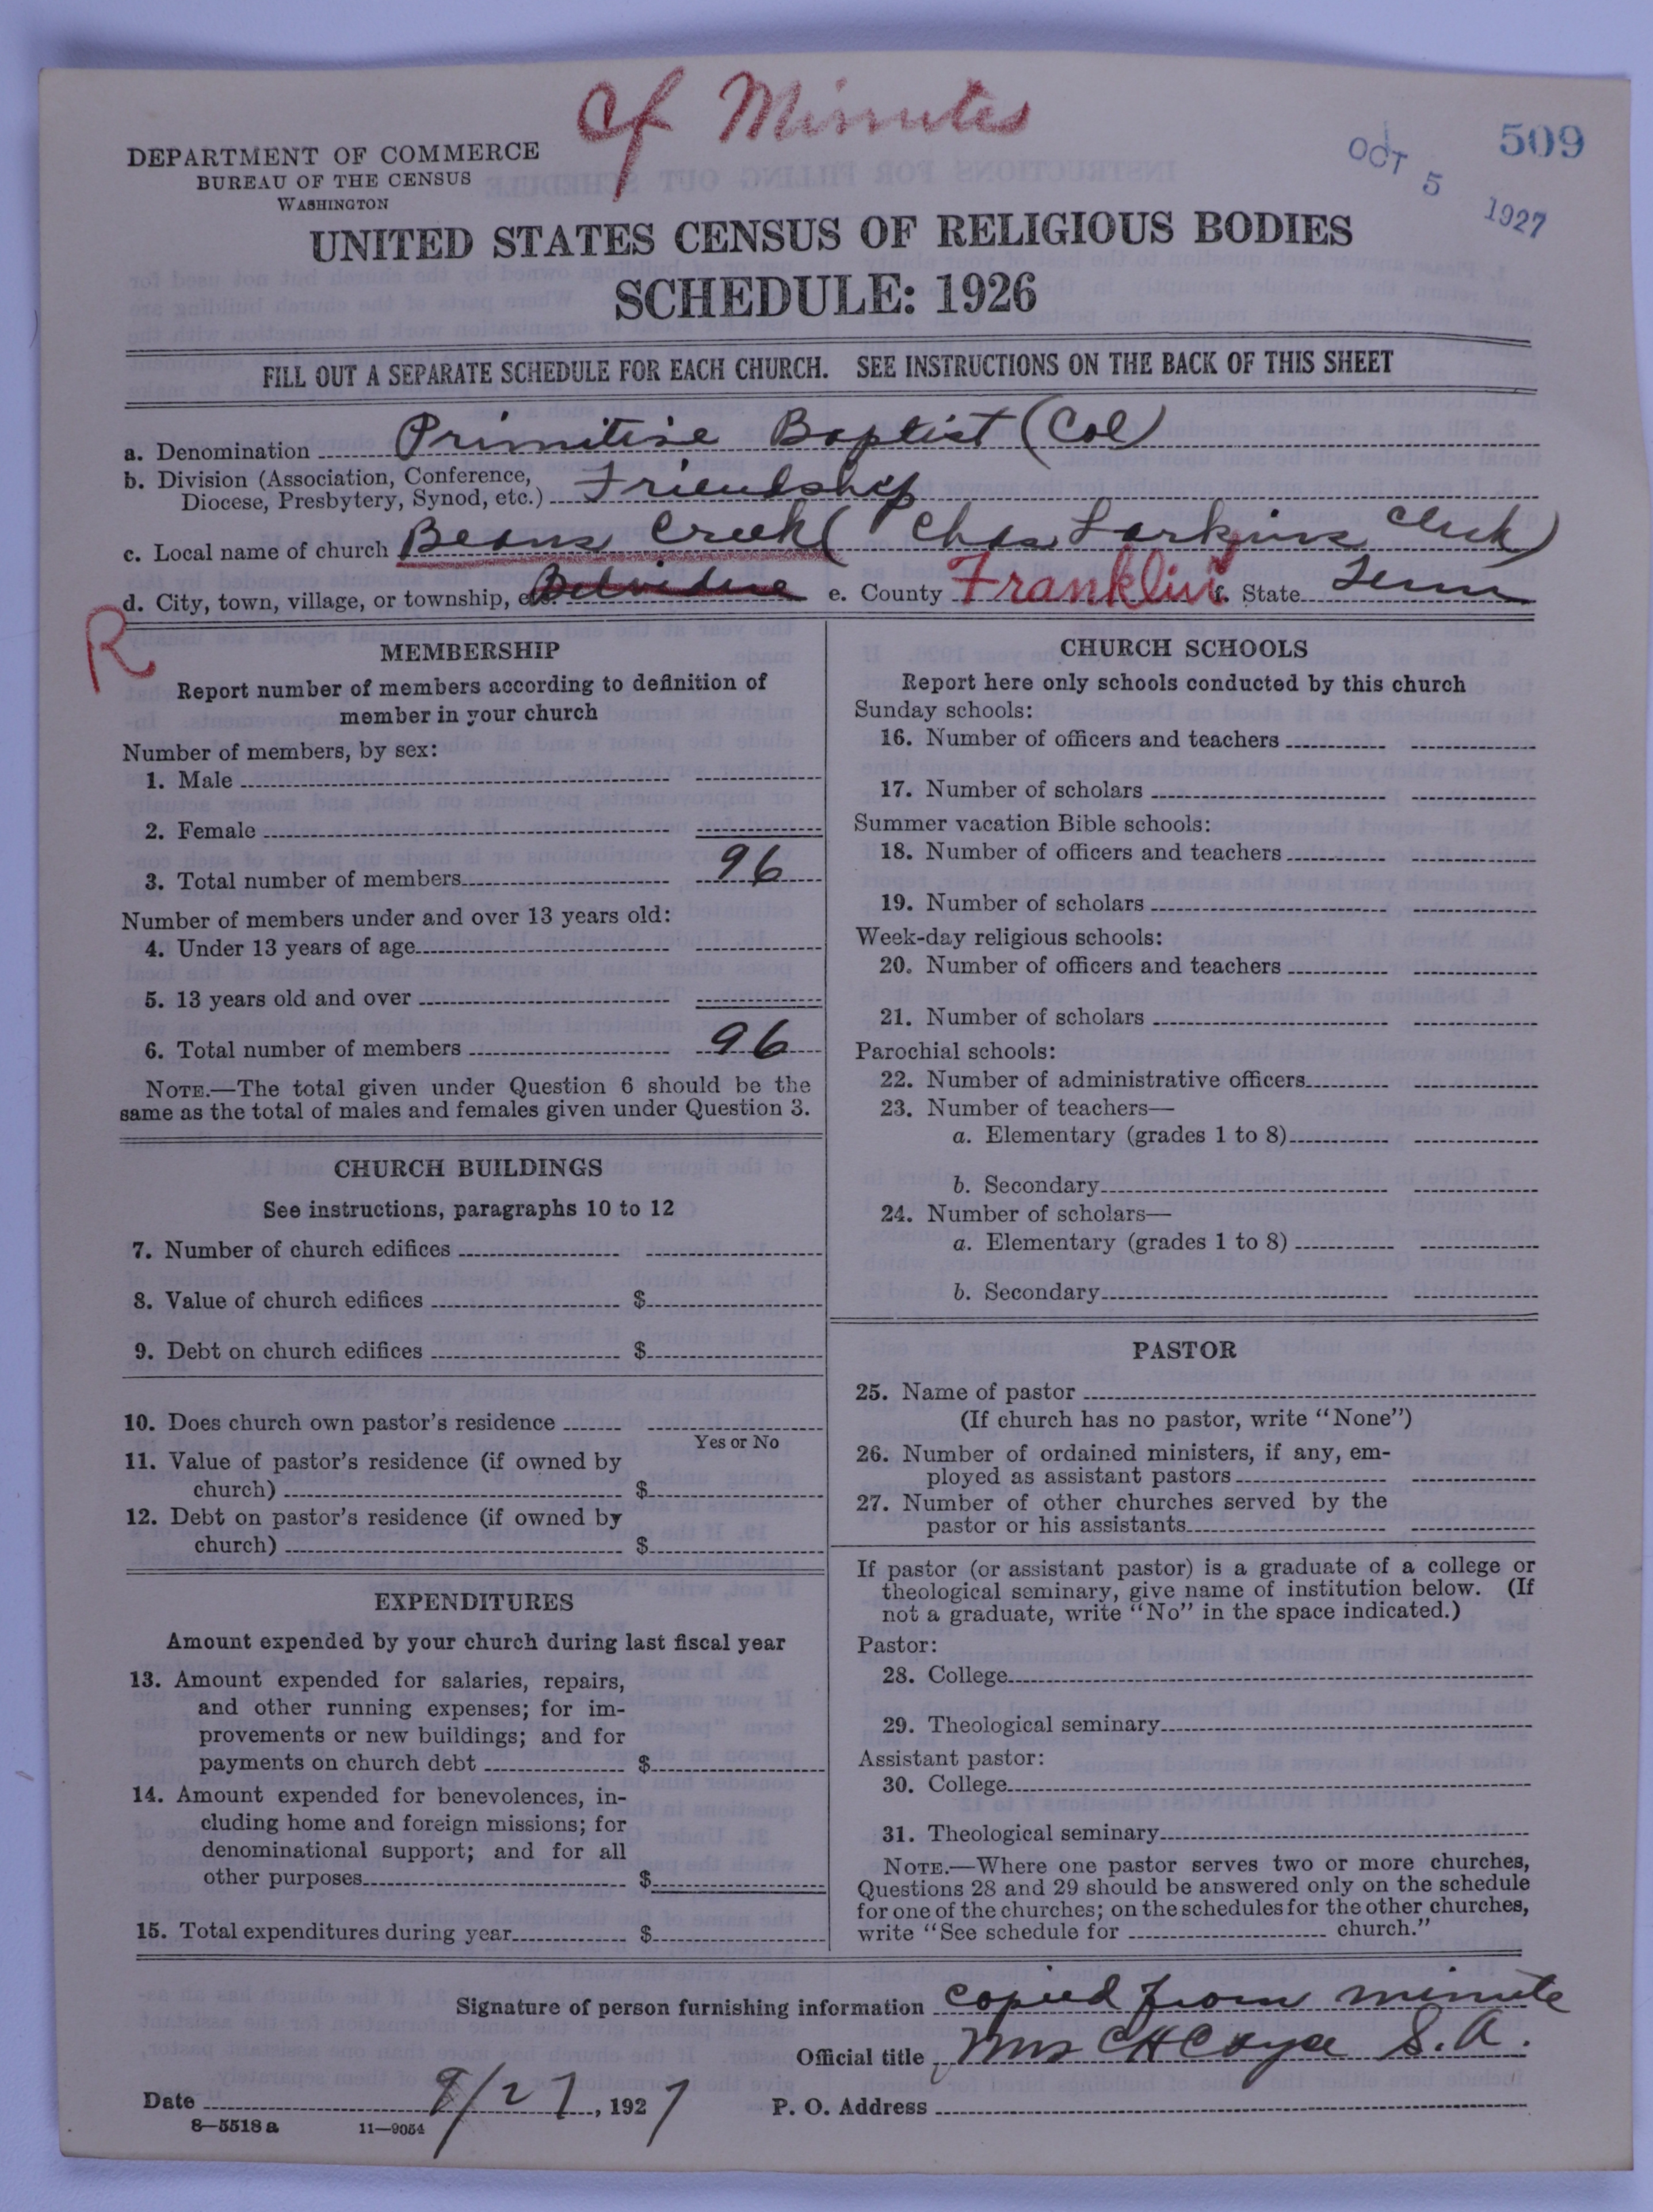 Cf Minutes
509
OCT 5 1927
DEPARTMENT OF COMMERCE
BUREAU OF THE CENSUS
WASHINGTON
UNITED STATES CENSUS OF RELIGIOUS BODIES
SCHEDULE: 1926
FILL OUT A SEPARATE SCHEDULE FOR EACH CHURCH. SEE INSTRUCTIONS ON THE BACK OF THIS SHEET
a. Denomination Primitive Baptist (Col)
b. Division (Association, Conference,
Diocese, Presbytery, Synod, etc.) Friendship
c. Local name of church Beans Creek (Chas Larkins Clerk)
d. City, town, village, or township, etc. Belvidere e. County Franklin f. State Tenn
R
MEMBERSHIP
Report number of members according to definition of
member in your church
Number of members, by sex:
1. Male
2. Female
3. Total number of members 96
Number of members under and over 13 years old:
4. Under 13 years of age
5. 13 years old and over
6. Total number of members 96
NOTE.—The total given under Question 6 should be the
same as the total of males and females given under Question 3.
CHURCH BUILDINGS
See instructions, paragraphs 10 to 12
7. Number of church edifices
8. Value of church edifices $
9. Debt on church edifices $
10. Does church own pastor's residence
Yes or No
11. Value of pastor's residence (if owned by
church) $
12. Debt on pastor's residence (if owned by
church) $
EXPENDITURES
Amount expended by your church during last fiscal year
13. Amount expended for salaries, repairs,
and other running expenses; for im-
provements or new buildings; and for
payments on church debt $
14. Amount expended for benevolences, in-
cluding home and foreign missions; for
denominational support; and for all
other purposes $
15. Total expenditures during year $
CHURCH SCHOOLS
Report here only schools conducted by this church
Sunday schools:
16. Number of officers and teachers
17. Number of scholars
Summer vacation Bible schools:
18. Number of officers and teachers
19. Number of scholars
Week-day religious schools:
20. Number of officers and teachers
21. Number of scholars
Parochial schools:
22. Number of administrative officers
23. Number of teachers—
a. Elementary (grades 1 to 8)
b. Secondary
24. Number of scholars—
a. Elementary (grades 1 to 8)
b. Secondary
PASTOR
25. Name of pastor
(If church has no pastor, write "None")
26. Number of ordained ministers, if any, em-
ployed as assistant pastors
27. Number of other churches served by the
pastor or his assistants
If pastor (or assistant pastor) is a graduate of a college or
theological seminary, give name of institution below. (If
not a graduate, write "No" in the space indicated.)
Pastor:
28. College
29. Theological seminary
Assistant pastor:
30. College
31. Theological seminary
NOTE.—Where one pastor serves two or more churches,
Questions 28 and 29 should be answered only on the schedule
for one of the churches; on the schedules for the other churches,
write "See schedule for church."
Signature of person furnishing information copied from minute
Official title Mrs C H Cayce S. A.
Date 9/27, 1927 P. O. Address
8—5518a 11—9054